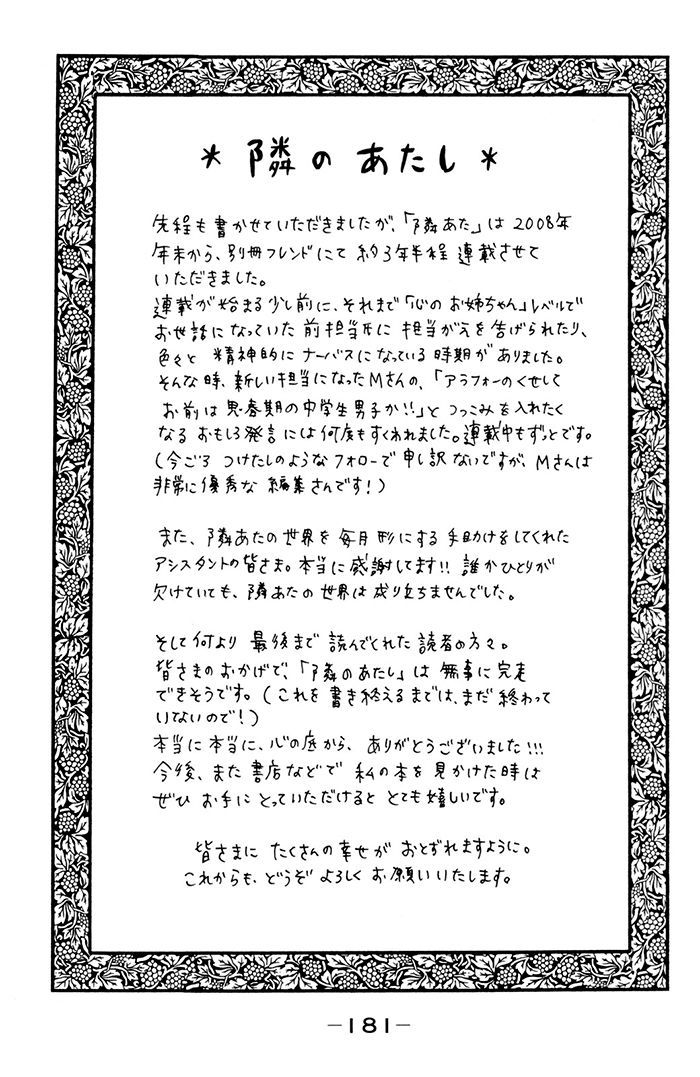 * 隣のあたし *
先程も書かせていただきましたが、「隣あた」は2008年
年末から、別冊フレンドにて約3年半程連載させて
いただきました。
連載が始まる少し前に、それまで「心のお姉ちゃん」レベルで
お世話になっていた前担当氏に担当がえを告げられたり、
色々と精神的にナーバスになっている時期がありました。
そんな時、新しい担当になったMさんの、「アラフォーのくせして
お前は思春期の中学生男子か!!」とつっこみを入れたく
なるおもしろ発言には何度もすくわれました。連載中もずっとです。
(今ごろつけたしのようなフォローで申し訳ないですが、Mさんは
非常に優秀な編集さんです!)
また、隣あたの世界を毎月形にする手助けをしてくれた
アシスタントの皆さま。本当に感謝してます!!誰かひとりが
欠けていても、隣あたの世界は成り立ちませんでした。
そして何より最後まで読んでくれた読者の方々。
皆さまのおかげで、「隣のあたし」は無事に完走
できそうです。(これを書き終えるまでは、まだ終わって
いないので!)
本当に本当に、心の底から、ありがとうございました!!!
今後、また書店などで私の本を見かけた時は
ぜひお手にとっていただけるととても嬉しいです。
皆さまにたくさんの幸せがおとずれますように。
これからも、どうぞよろしくお願いいたします。
-181-